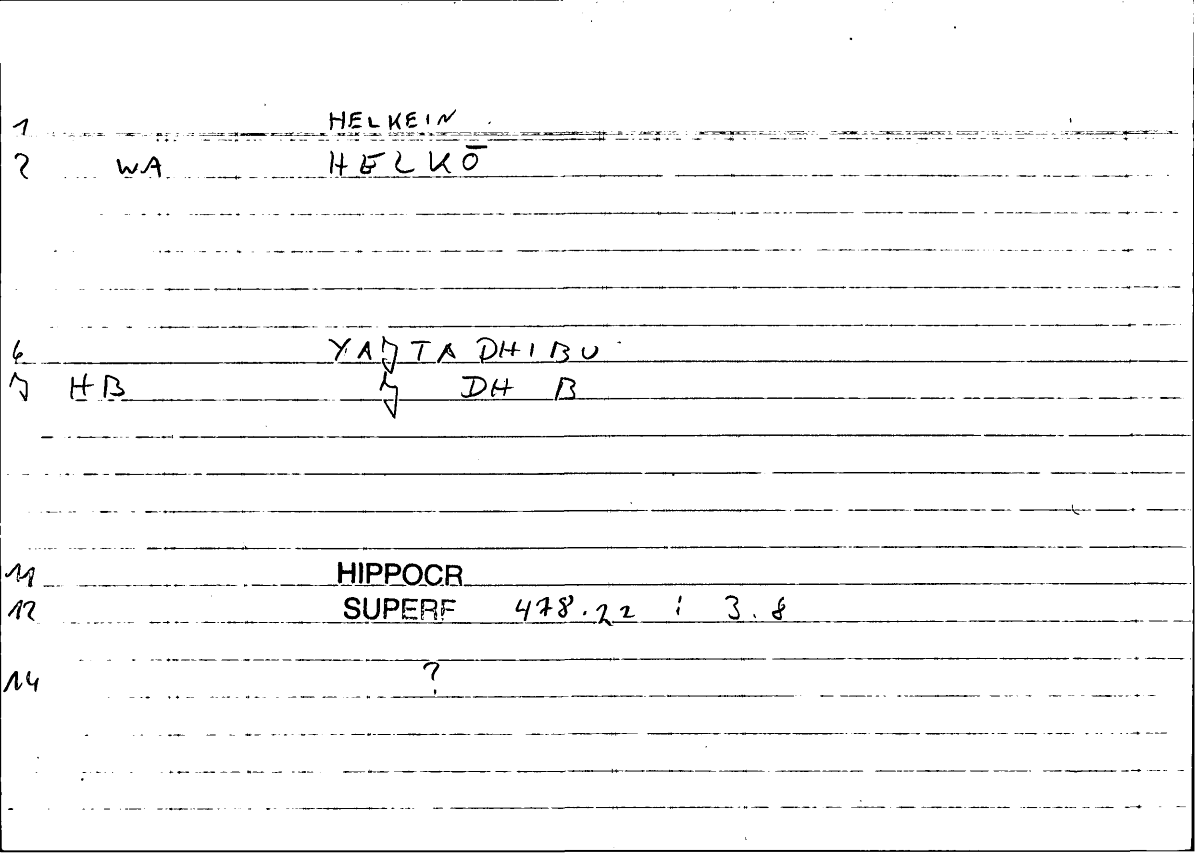 1 HELKEIN
2 WA HELKŌ
6 YAJTADHIBU
7 HB J DH B
11 HIPPOCR
12 SUPERF 478.22 : 3.8
14 ?